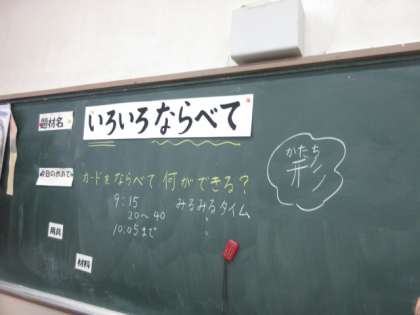 題材名
いろいろならべて
今日のめあて
カードをならべて 何ができる?
9:15
20~40
10:05まで
みるみるタイム
かたち
形
用具
材料